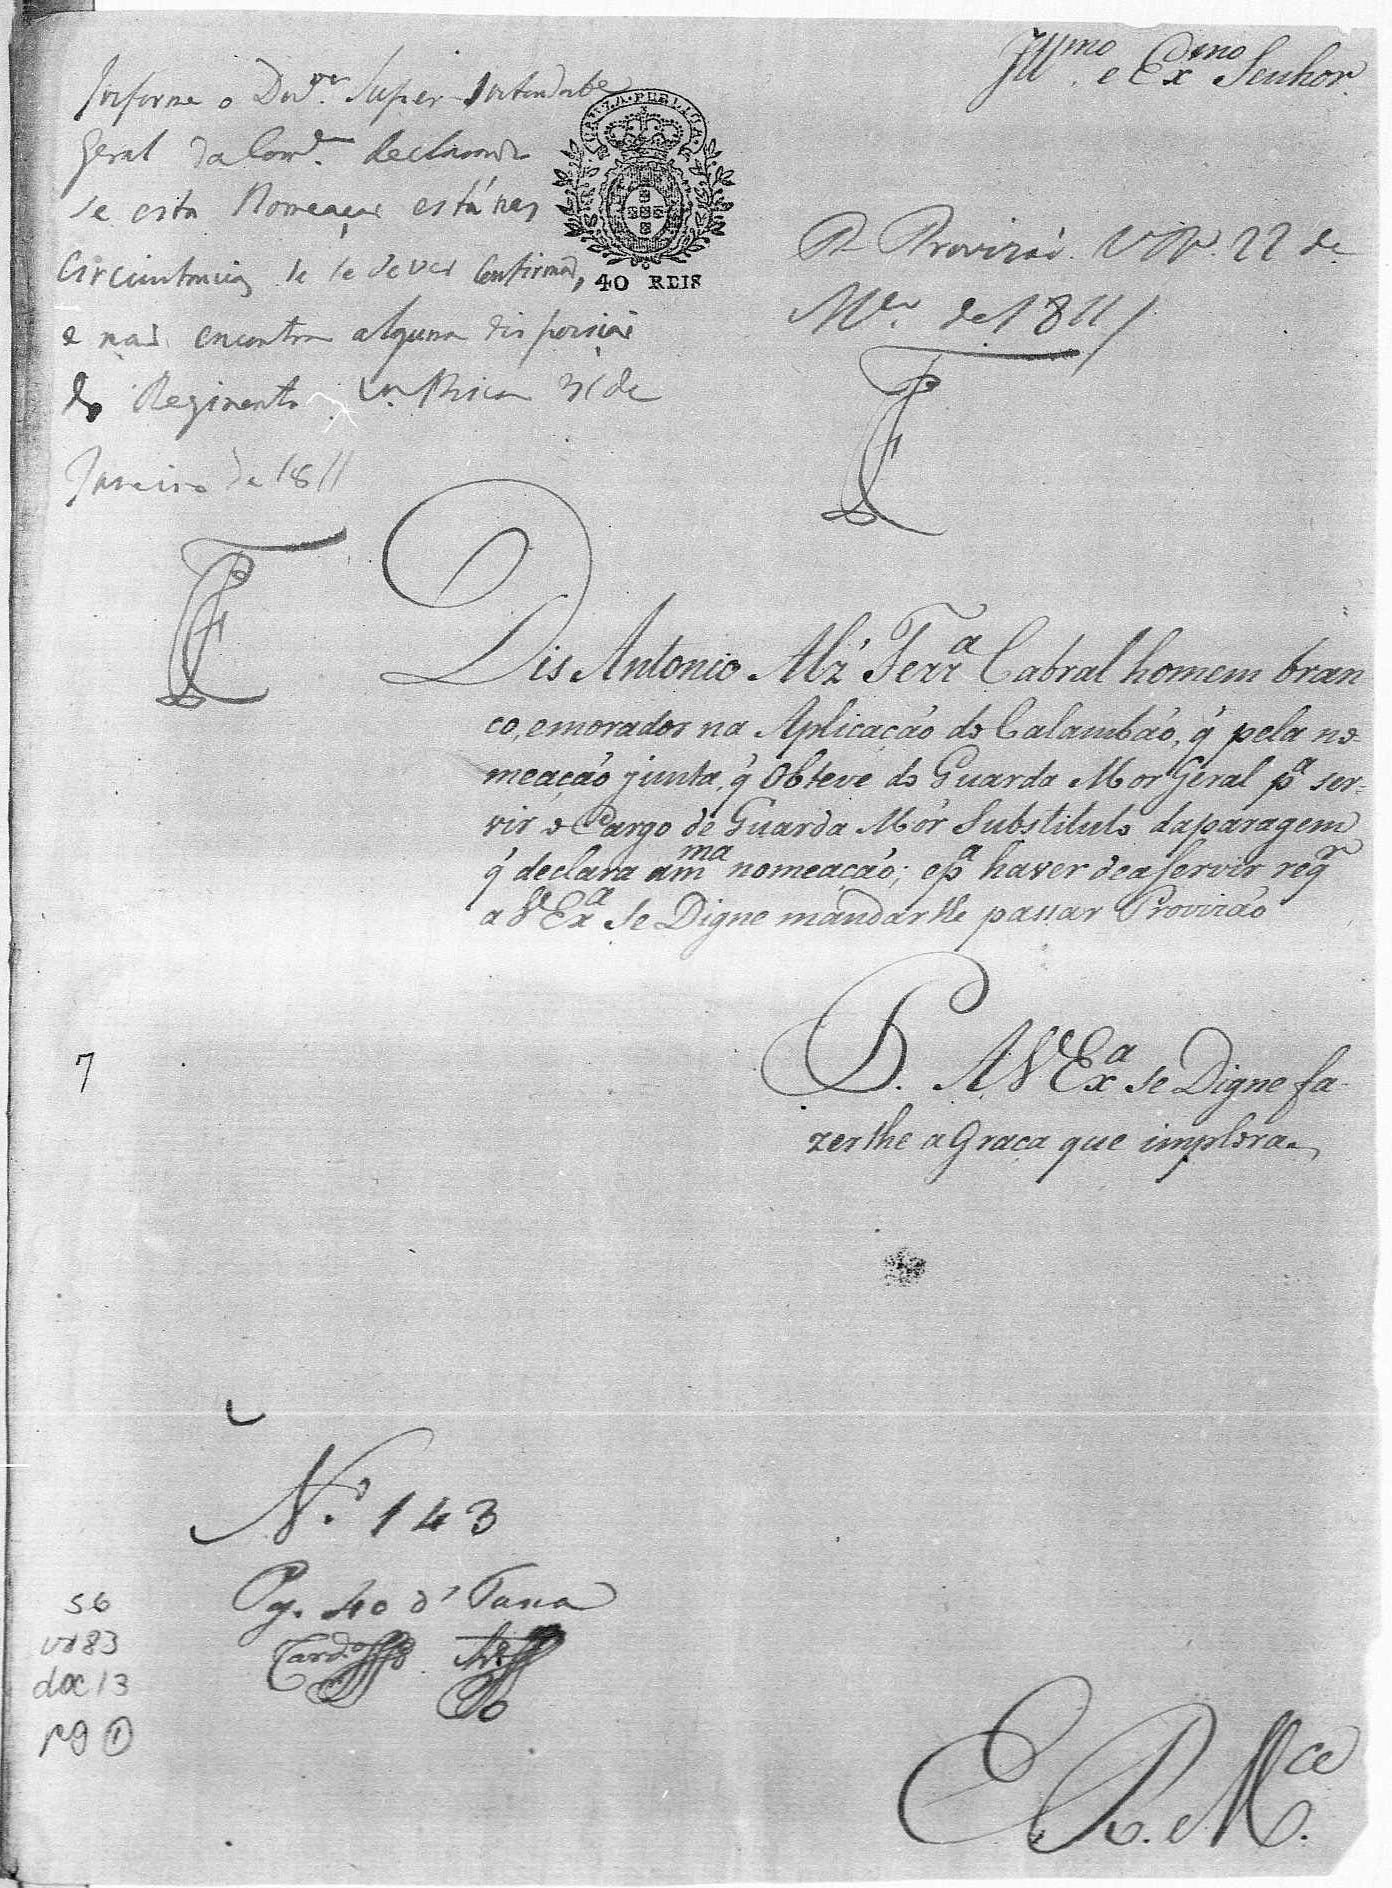 Illmo. e Exmo Senhor.
Informe o Dor. Super Intendente
Geral da Com.
se esta Nomeação está nas
Circunstancias de se dever Confirmar,
e não encontra alguma disposição
do Regimento Va. Rica 31 de
Janeiro de 1811
FAZENDA PUBLICA
40 REIS
P. Provizão Va. Ra. 22 de
Mço. de 1811
Dis Antonio Alz' Ferra Cabral homem bran
co, emorador na Aplicação do Calambáo, q' pela no
meação junta, q' Obteve do Guarda Mor Geral pa ser=
vir o Cargo de Guarda Mór Substituto daparagem
q' declara amma nomeação; epa haver deaservir reqr
a VExa se Digne mandarlhe passar Provizão
P. AVExa se Digne fa
zerlhe a Graça que implora
7
No. 143
Pg. 40 d' Taxa
Cardozo
56
cx83
doc 13
pg 1
E R. Mce.